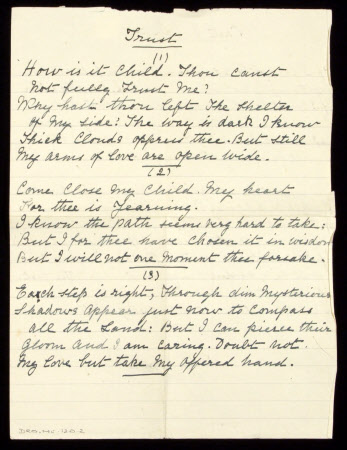 Trust
(1)
How is it Child. Thou canst
Not fully Trust Me?
Why hast thou left The Shelter
Of My side: The way is dark I know
Thick Clouds oppress thee. But still
My arms of love are open wide.
(2)
Come Close My Child. My heart
For thee is Yearning.
I know the path seems very hard to take:
But I for thee have Chosen it in wisdom
But I will not one moment thee forsake.
(3)
Each step is right, Through dim Mysterious
Shadows Appear just now to Compass
all the Land: But I can pierce their
Gloom And I am caring. Doubt not
My Love but take My offered hand.